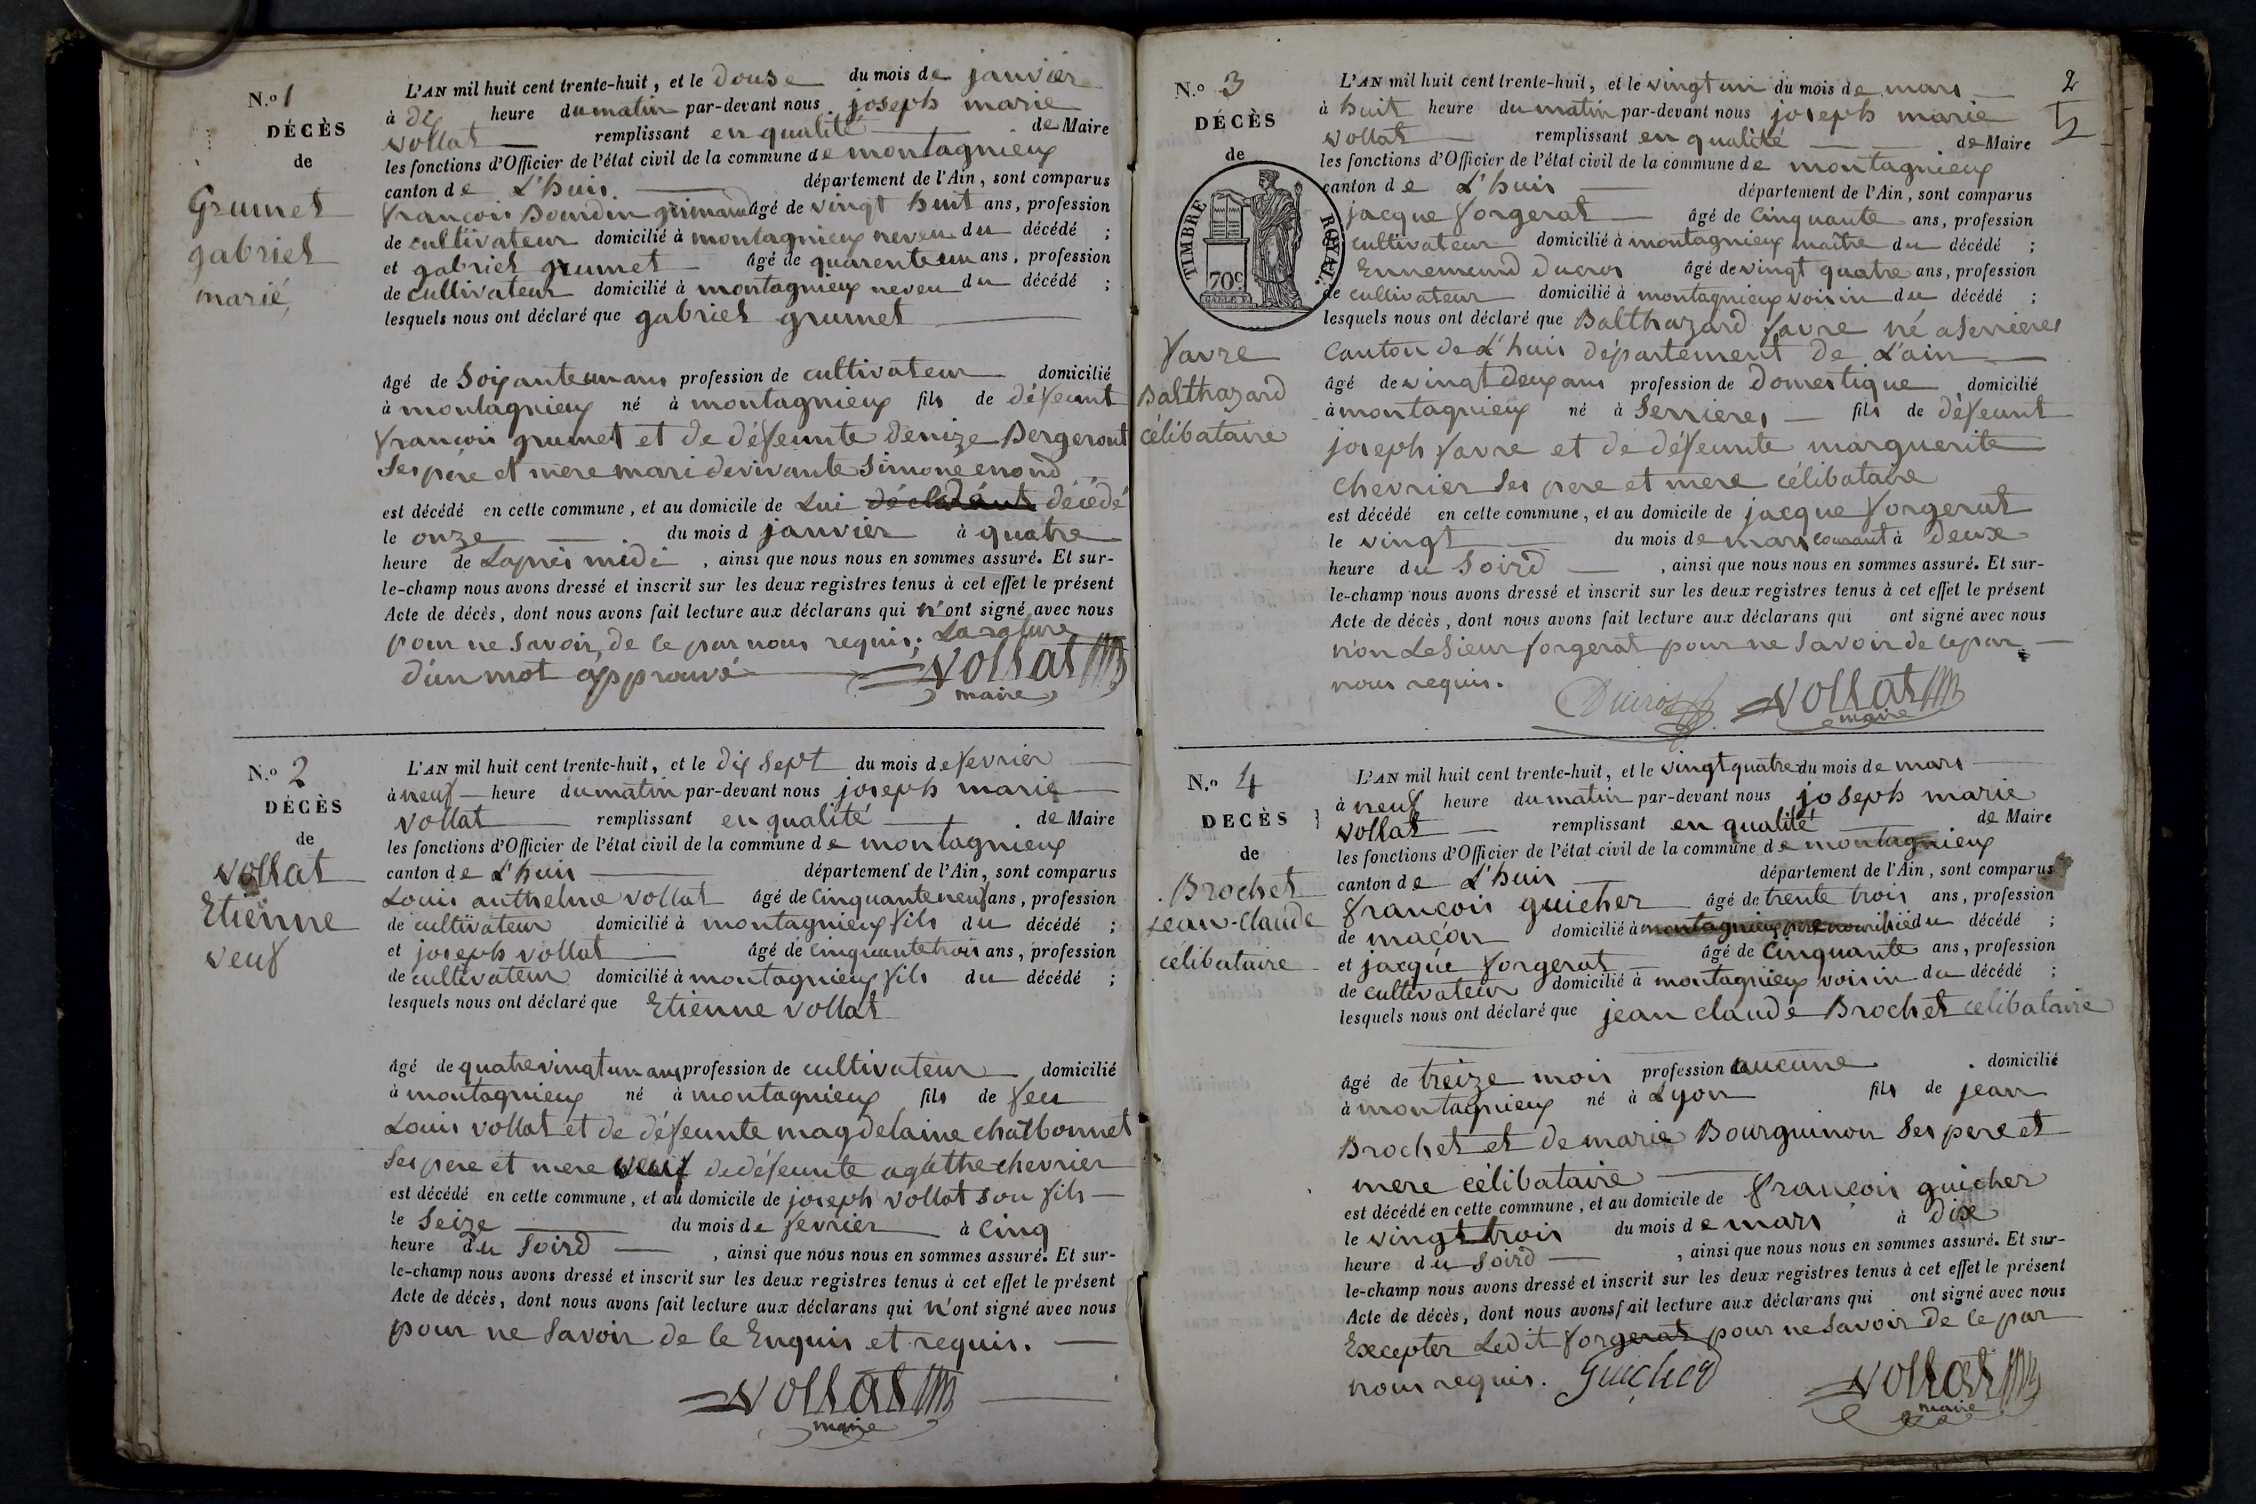 N.º 1
DÉCÈS
de
Grumet
gabriel
marié
L'AN mil huit cent trente-huit, et le douse du mois de janvier
à dix heure du matin par-devant nous joseph marie
vollat remplissant en qualité de Maire
les fonctions d'Officier de l'état civil de la commune de montagnieux
canton de L'huis département de l'Ain, sont comparus
françois Bourdin grimand âgé de vingt huit ans, profession
de cultivateur domicilié à montagnieux neveu du décédé ;
et gabriel grumet âgé de quarente un ans, profession
de cultivateur domicilié à montagnieux neveu du décédé ;
lesquels nous ont déclaré que gabriel grumet
âgé de Soixante un ans profession de cultivateur domicilié
à montagnieux né à montagnieux fils de défeunt
françois grumet et de défeunte denize Bergeront
Ses père et mere mari de vivante Simone enond
est décédé en cette commune, et au domicile de Lui déclarant décédé
le onze du mois d janvier à quatre
heure de Lapres midi, ainsi que nous nous en sommes assuré. Et sur-
le-champ nous avons dressé et inscrit sur les deux registres tenus à cet effet le présent
Acte de décès, dont nous avons fait lecture aux déclarans qui n'ont signé avec nous
pour ne Savoir, de ce par nous requis; La rature
d'un mot approuvé vollat
maire
N.º 2
DÉCÈS
de
vollat
Etienne
veuf
L'AN mil huit cent trente-huit, et le dix Sept du mois de fevrier
à neuf heure du matin par-devant nous joseph marie
vollat remplissant en qualité de Maire
les fonctions d'Officier de l'état civil de la commune de montagnieux
canton de L'huis département de l'Ain, sont comparus
Louis anthelme vollat âgé de Cinquante neuf ans, profession
de cultivateur domicilié à montagnieux fils du décédé ;
et joseph vollat âgé de Cinquante trois ans, profession
de cultivateur domicilié à montagnieux fils du décédé ;
lesquels nous ont déclaré que Etienne vollat
âgé de quatre vingt un ans profession de cultivateur domicilié
à montagnieux né à montagnieux fils de feu
Louis vollat et de défeunte magdelaine chalbonnet
Ses pere et mere veuf de défeunte agathe chevrier
est décédé en cette commune, et au domicile de joseph vollat son fils
le Seize du mois de fevrier à Cinq
heure du Soird, ainsi que nous nous en sommes assuré. Et sur-
le-champ nous avons dressé et inscrit sur les deux registres tenus à cet effet le présent
Acte de décès, dont nous avons fait lecture aux déclarans qui n'ont signé avec nous
pour ne Savoir de ce Enquis et requis.
vollat
maire
2
N.º 3
DÉCÈS
de
TIMBRE ROYAL.
70c
favre
Balthazard
célibataire
L'AN mil huit cent trente-huit, et le vingt un du mois de mars
à huit heure du matin par-devant nous joseph marie
vollat remplissant en qualité de Maire
les fonctions d'Officier de l'état civil de la commune de montagnieux
canton de L'huis département de l'Ain, sont comparus
jacque forgerat âgé de Cinquante ans, profession
cultivateur domicilié à montagnieux maître du décédé ;
Ennemend ducros âgé de vingt quatre ans, profession
de cultivateur domicilié à montagnieux voisin du décédé ;
lesquels nous ont déclaré que Balthazard favre né a Serrieres
Canton de L'huis département de L'ain
âgé de vingt deux ans profession de Domestique domicilié
à montagnieux né à Serrieres fils de défeunt
joseph favre et de défeunte marguerite
Chevrier Ses pere et mere célibataire
est décédé en cette commune, et au domicile de jacque forgerat
le vingt du mois de mars courant à deux
heure du Soird, ainsi que nous nous en sommes assuré. Et sur-
le-champ nous avons dressé et inscrit sur les deux registres tenus à cet effet le présent
Acte de décès, dont nous avons fait lecture aux déclarans qui ont signé avec nous
non LeSieur forgerat pour ne Savoir de ce par
nous requis.
Ducros vollat
maire
N.º 4
DECÈS
de
Brochet
Jean-Claude
célibataire
L'AN mil huit cent trente-huit, et le vingt quatre du mois de mars
à neuf heure du matin par-devant nous joseph marie
vollat remplissant en qualité de Maire
les fonctions d'Officier de l'état civil de la commune de montagnieux
canton de L'huis département de l'Ain, sont comparus
françois guicher âgé de trente trois ans, profession
de maçon domicilié à montagnieux pere nouricié du décédé ;
et jacque forgerat âgé de Cinquante ans, profession
de cultivateur domicilié à montagnieux voisin du décédé ;
lesquels nous ont déclaré que jean claude Brochet célibataire
âgé de treize mois profession aucune domicilié
à montagnieux né à Lyon fils de jean
Brochet et de marie Bourguinon Ses pere et
mere célibataire
est décédé en cette commune, et au domicile de françois guicher
le vingt trois du mois de mars à dix
heure du Soird, ainsi que nous nous en sommes assuré. Et sur-
le-champ nous avons dressé et inscrit sur les deux registres tenus à cet effet le présent
Acte de décès, dont nous avons fait lecture aux déclarans qui ont signé avec nous
Excepter Ledit forgerat pour ne Savoir de ce par
nous requis. Guicherd vollat
maire